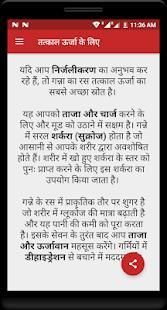 11:36 AM
तत्काल ऊर्जा के लिए
यदि आप निर्जलीकरण का अनुभव कर
रहे हैं, तो गन्ना का रस तत्काल ऊर्जा का
सबसे अच्छा स्रोत है।
यह आपको ताजा और चार्ज करने
के लिए और मूड को उठाने में सक्षम है। गन्ने
में सरल शर्करा (सुक्रोज) होता है जो
आसानी से आपके शरीर द्वारा अवशोषित
होते हैं। शरीर में खो हुए शर्करा के स्तर को
पुनः प्राप्त करने के लिए इस शर्करा का
उपयोग किया जाता है।
गन्ने के रस में प्राकृतिक तौर पर शुगर है
जो शरीर में ग्लूकोज की मात्रा बढ़ाती है
और यह पानी की कमी को पूरा करता
है। इसके सेवन के तुरंत बाद आप ताजा
और ऊर्जावान महसूस करेंगे। गर्मियों में
डीहाइड्रेशन से बचाने में मदद